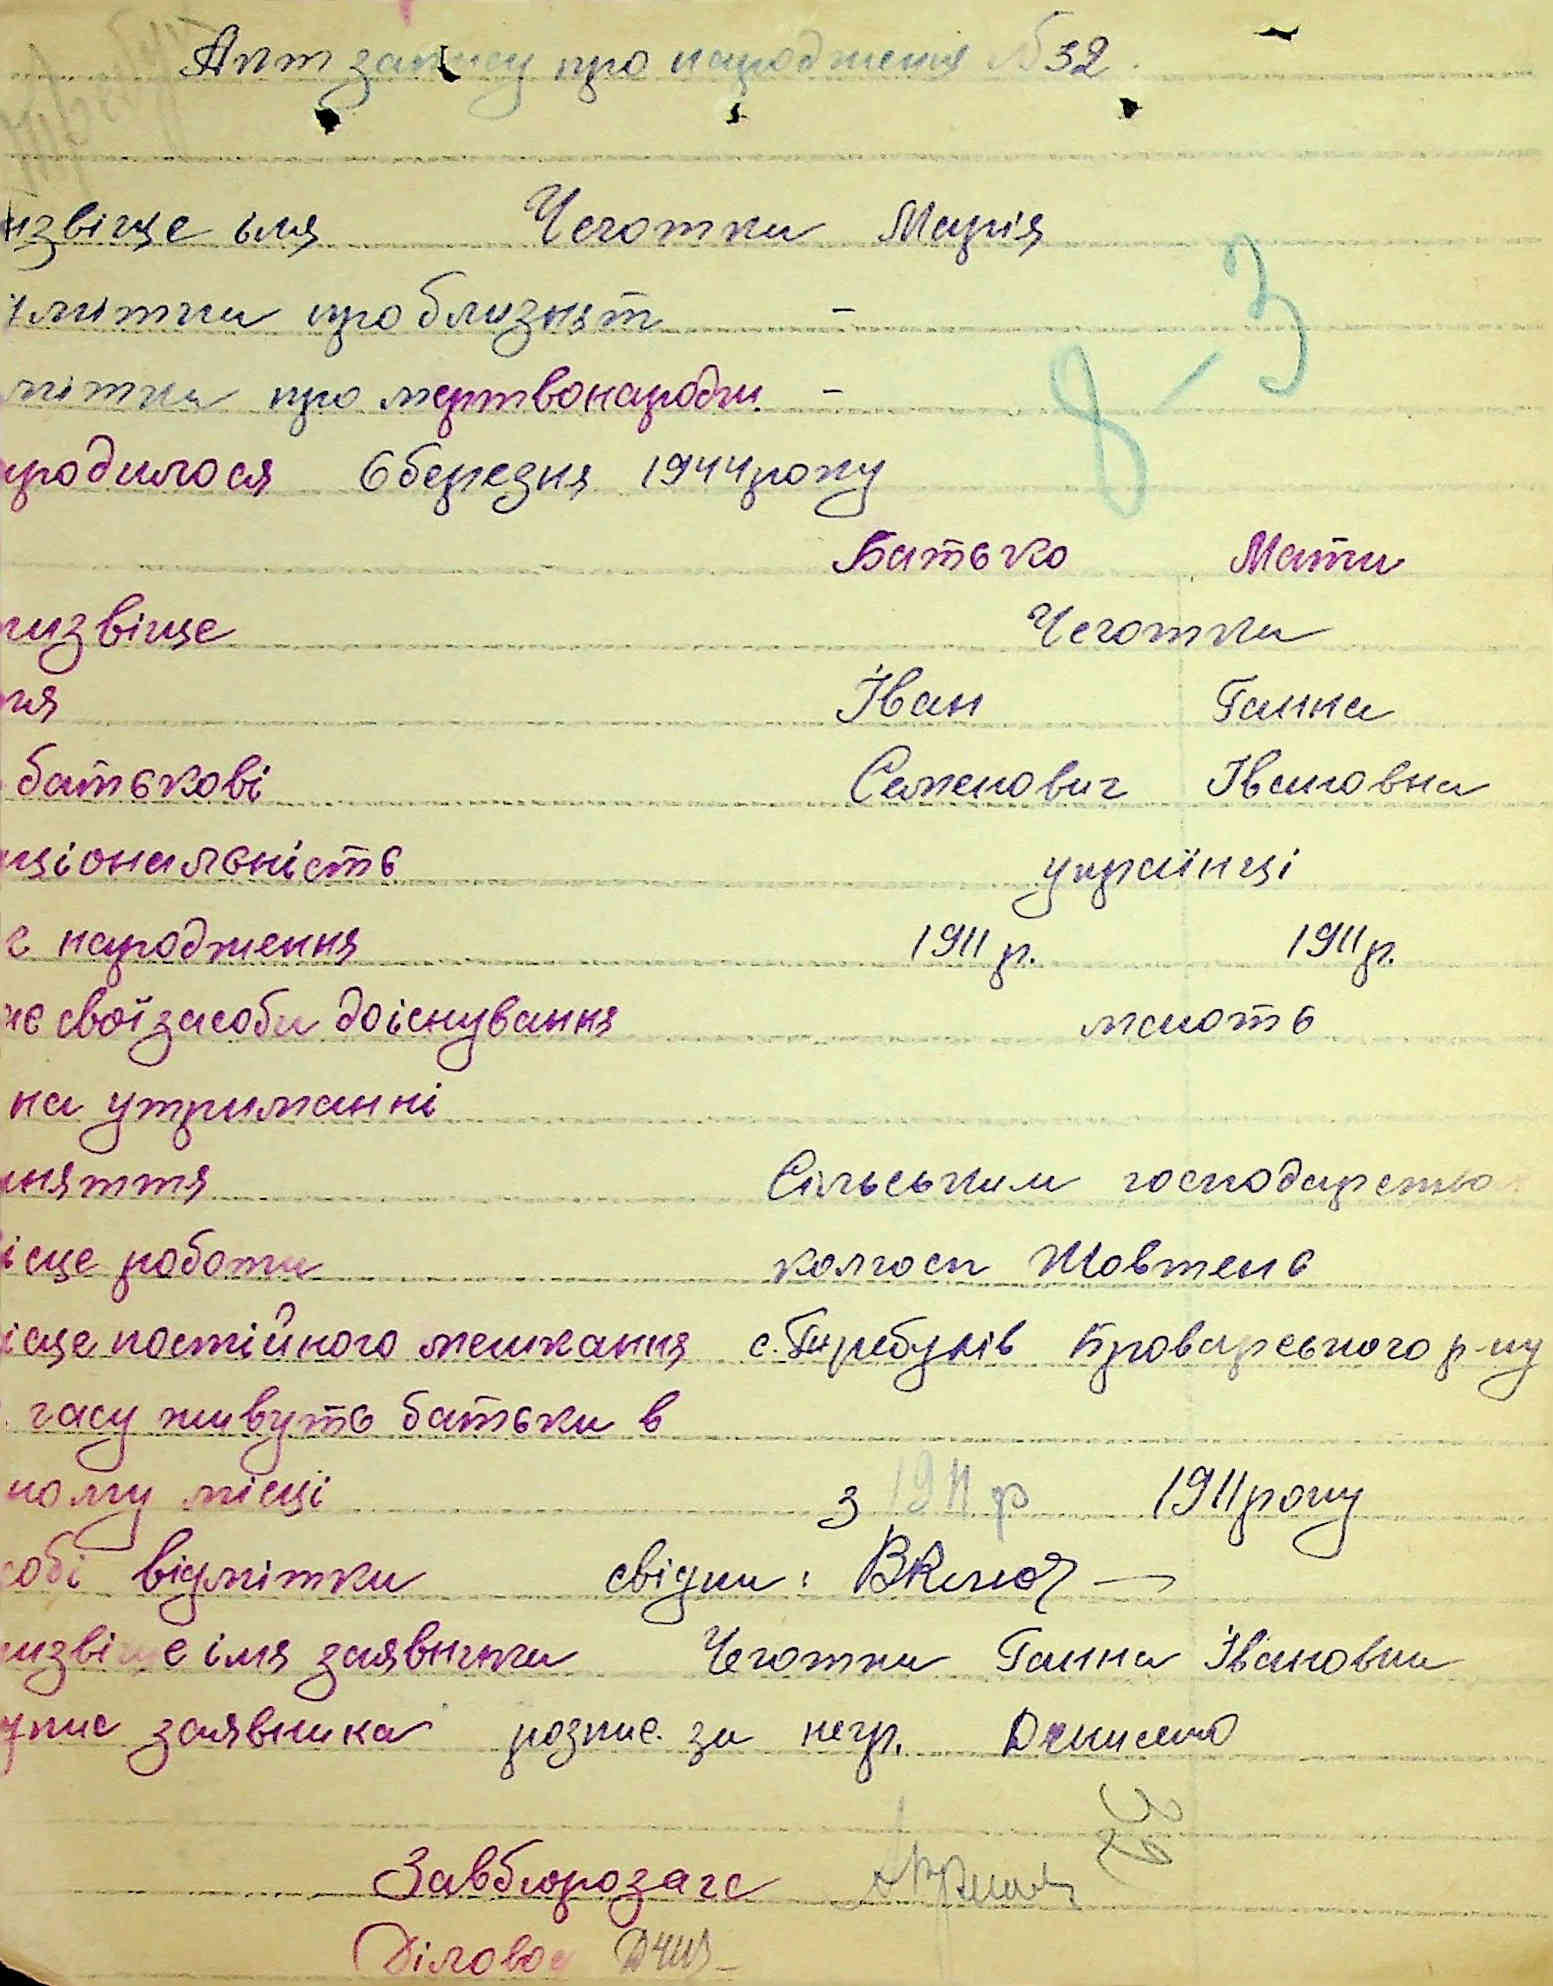 Акт запису про народження №32.
ізвіще імя Чеготка Марія
ідмітки про близнят -
мітка про мертвонародж. -
ародилося 6 березня 1944 року
Батько Мати
ризвіще Чеготка
мя Іван Ганна
батькові Семенович Івановна
аціональність українці
к народження 1911 р. 1911 р.
ає свої засоби до існування мають
на утриманні
аняття Сільським господарство
ісце роботи колгосп Жовтень
ісце постійного мешкання с. Требухів Броварського р-ну
часу живуть батьки в
ному місці з 1911 р 1911 року
собі відмітки свідки:
ризвіще імя заявника Чеготка Ганна Івановна
дпис заявника розпис. за негр.
Завбюрозагс
Діловод
8-3